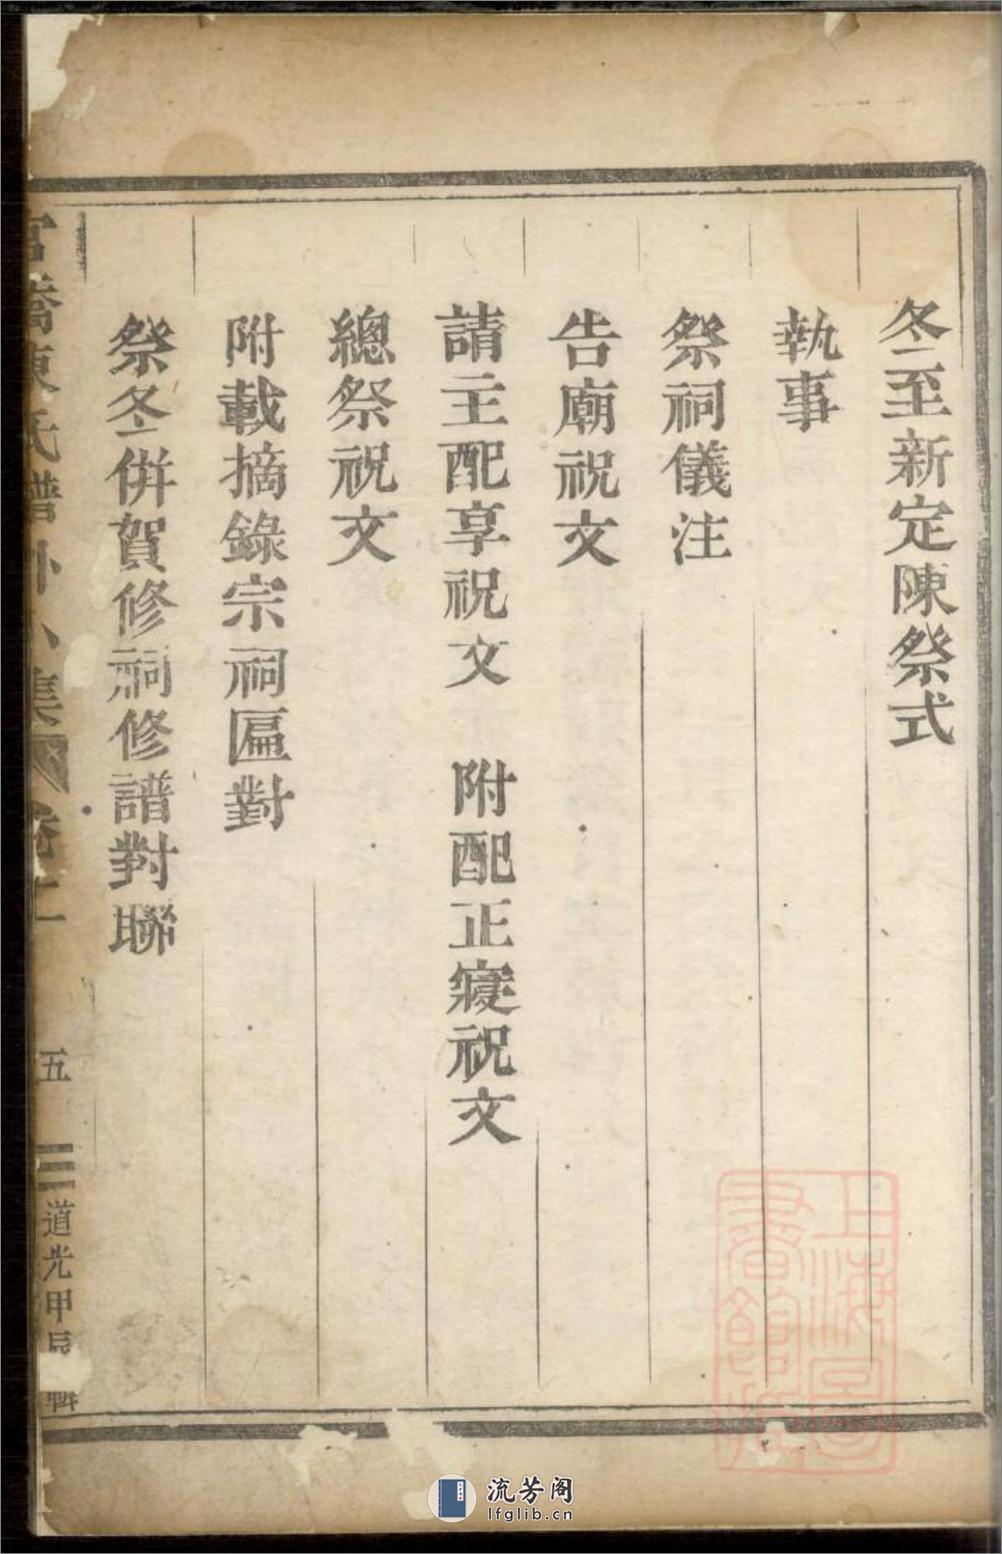 冬至新定陳祭式
執事
祭祠儀注
告廟祝文
請主配享祝文　附配正寢祝文
總祭祝文
附載摘錄宗祠匾對
祭冬併賀修祠修譜對聯
氏譜 集 五 道光甲辰 輯
上海圖書館藏
流芳阁
lfglib.cn